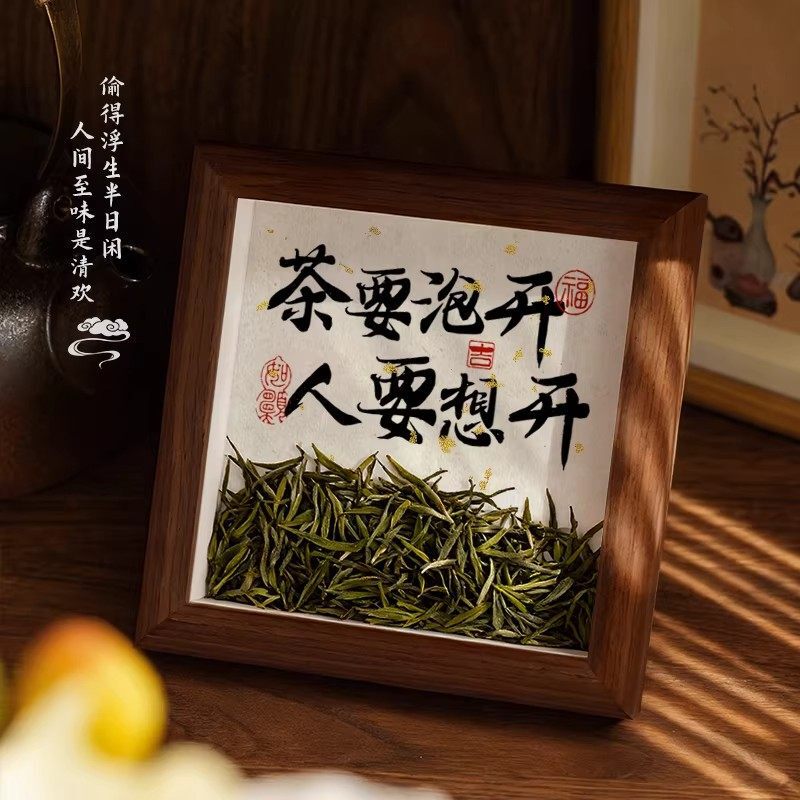 偷得浮生半日闲
人间至味是清欢
茶要泡开
福
吉
人要想开